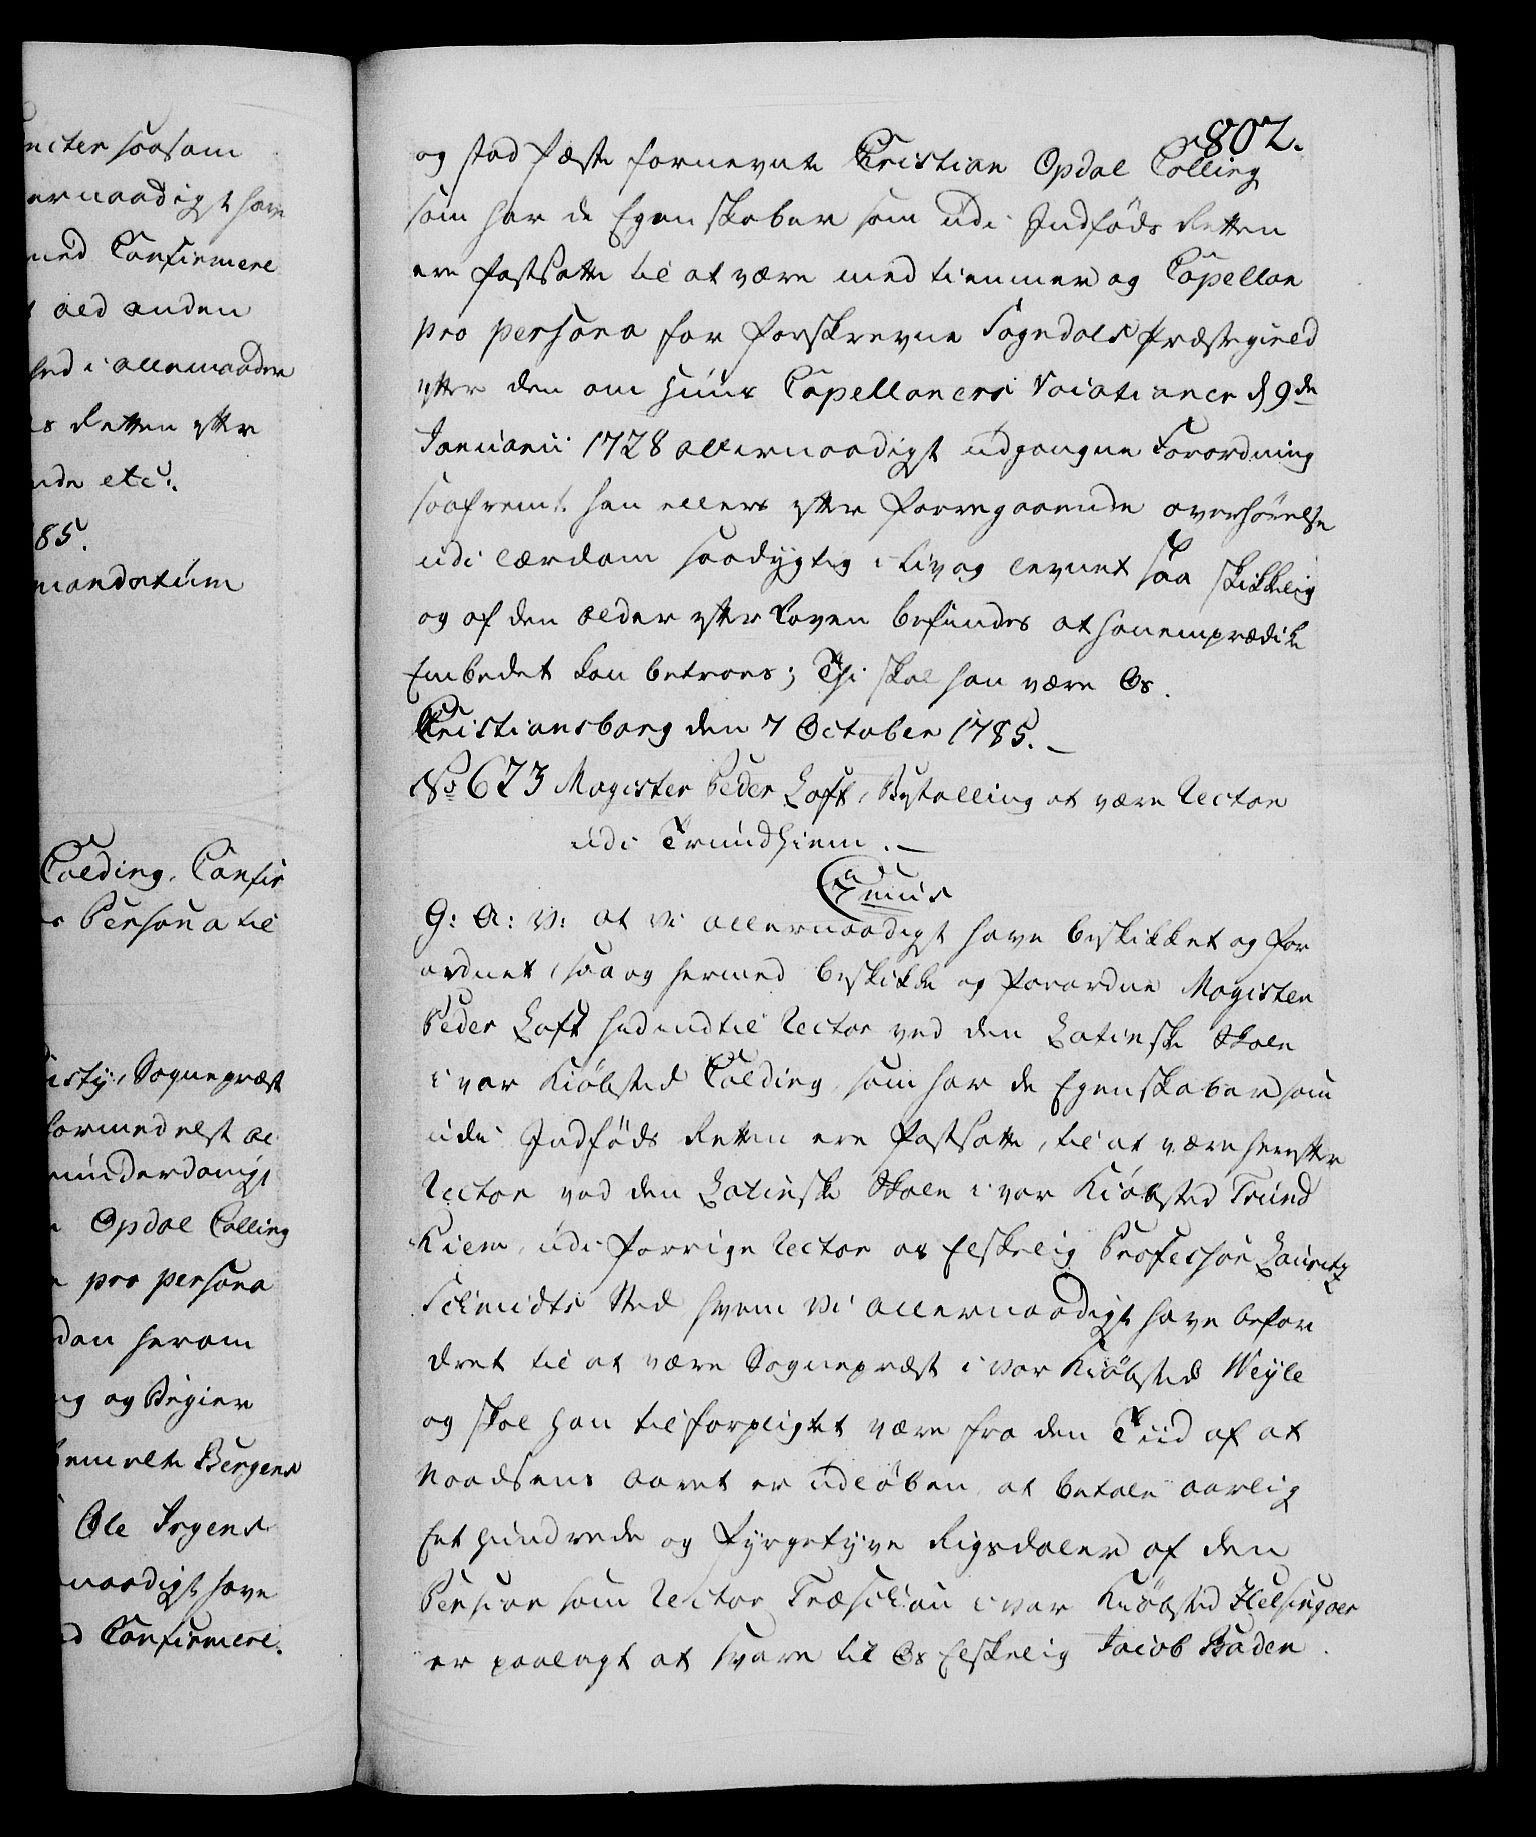 ncter saasom
ernaadigst have
med Confirmere
ald anden
hed i allemaader
s Retten efter
nde etc:.
85.
mandatum
Colding, Confir
s Persona til
isty, Sognepræst
formedelst al
underdanigst
Opdal Colling
pro persona
dan herom
ng og Begier
bemelte Bergens
Ole Irgens
naadigst have
ed Confirmere.
802.
og stad fæste fornevnte Christian Opdal Colling
som har de Egenskaber som udi Indføds Retten
ere fastsatte til at være medtienner og Capellan
pro persona for forskrevne Sogndals Præstegield
efter den om Huus Capellaners Vocationer d 9de
Januarii 1728 allernaadigst udgangne Forordning
saafremt han ellers efter foregaaende overhørelse
udi lærdom saadygtig i liv og levnet saa skikkelig
og af den alder efter Loven befindes at hanem prædike
Embedet kan betroes; Thi skal han være Os.
Christiansborg den 7 October 1785.
No 673 Magister Peder Loft, Bestalling at være Rector
udi Trundhiem.
Qvnis
G: A: V: at Vi allernaadigst have beskikket og for
ordnet, saa og hermed beskikke og forordne Magister
Peder Loft hidindtil Rector ved den Latinske Skole
i vor Kiøbsted Colding, som har de Egenskaber som
udi Indføds Retten ere fastsatte, til at være herefter
Rector ved den Latinske Skole i vor Kiøbsted Trund
hiem, udi forrige Rector os Elskelig Professor Lauritz
Schmidts Sted hvem Vi allernaadigst have befor
dret til at være Sognepræst i vor Kiøbsted Weyle
og skal han tilforpligtet være fra den Tiid af at
Naadsens aaret er udløben at betale aarlig
Et hundrede og Fyrgetyve Rigsdaler af den
Pension som Rector Træschou i vor Kiøbsted Helsingøer
er paalagt at svare til Os Elskelig Jacob Baden.